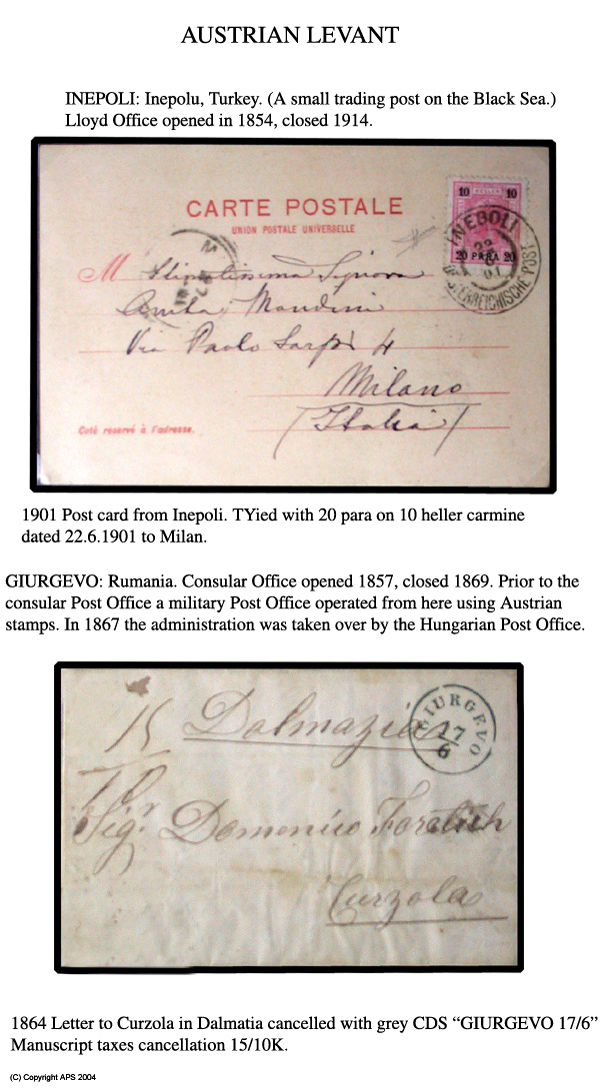 AUSTRIAN LEVANT
INEPOLI: Inepolu, Turkey. (A small trading post on the Black Sea.)
Lloyd Office opened in 1854, closed 1914.
CARTE POSTALE
UNION POSTALE UNIVERSELLE
10 HELLER 10
20 PARA 20
INEBOLI
22
6
01
ÖSTERREICHISCHE POST
M Stimatissima Signora
Anita Mondini
Via Paolo Sarpi 4
Milano
(Italia)
Coté reservé à l'adresse.
1901 Post card from Inepoli. TYied with 20 para on 10 heller carmine
dated 22.6.1901 to Milan.
GIURGEVO: Rumania. Consular Office opened 1857, closed 1869. Prior to the
consular Post Office a military Post Office operated from here using Austrian
stamps. In 1867 the administration was taken over by the Hungarian Post Office.
15
10
Dalmazia
GIURGEVO
17
6
Sigr. Domenico
Curzola
1864 Letter to Curzola in Dalmatia cancelled with grey CDS “GIURGEVO 17/6”
Manuscript taxes cancellation 15/10K.
(C) Copyright APS 2004